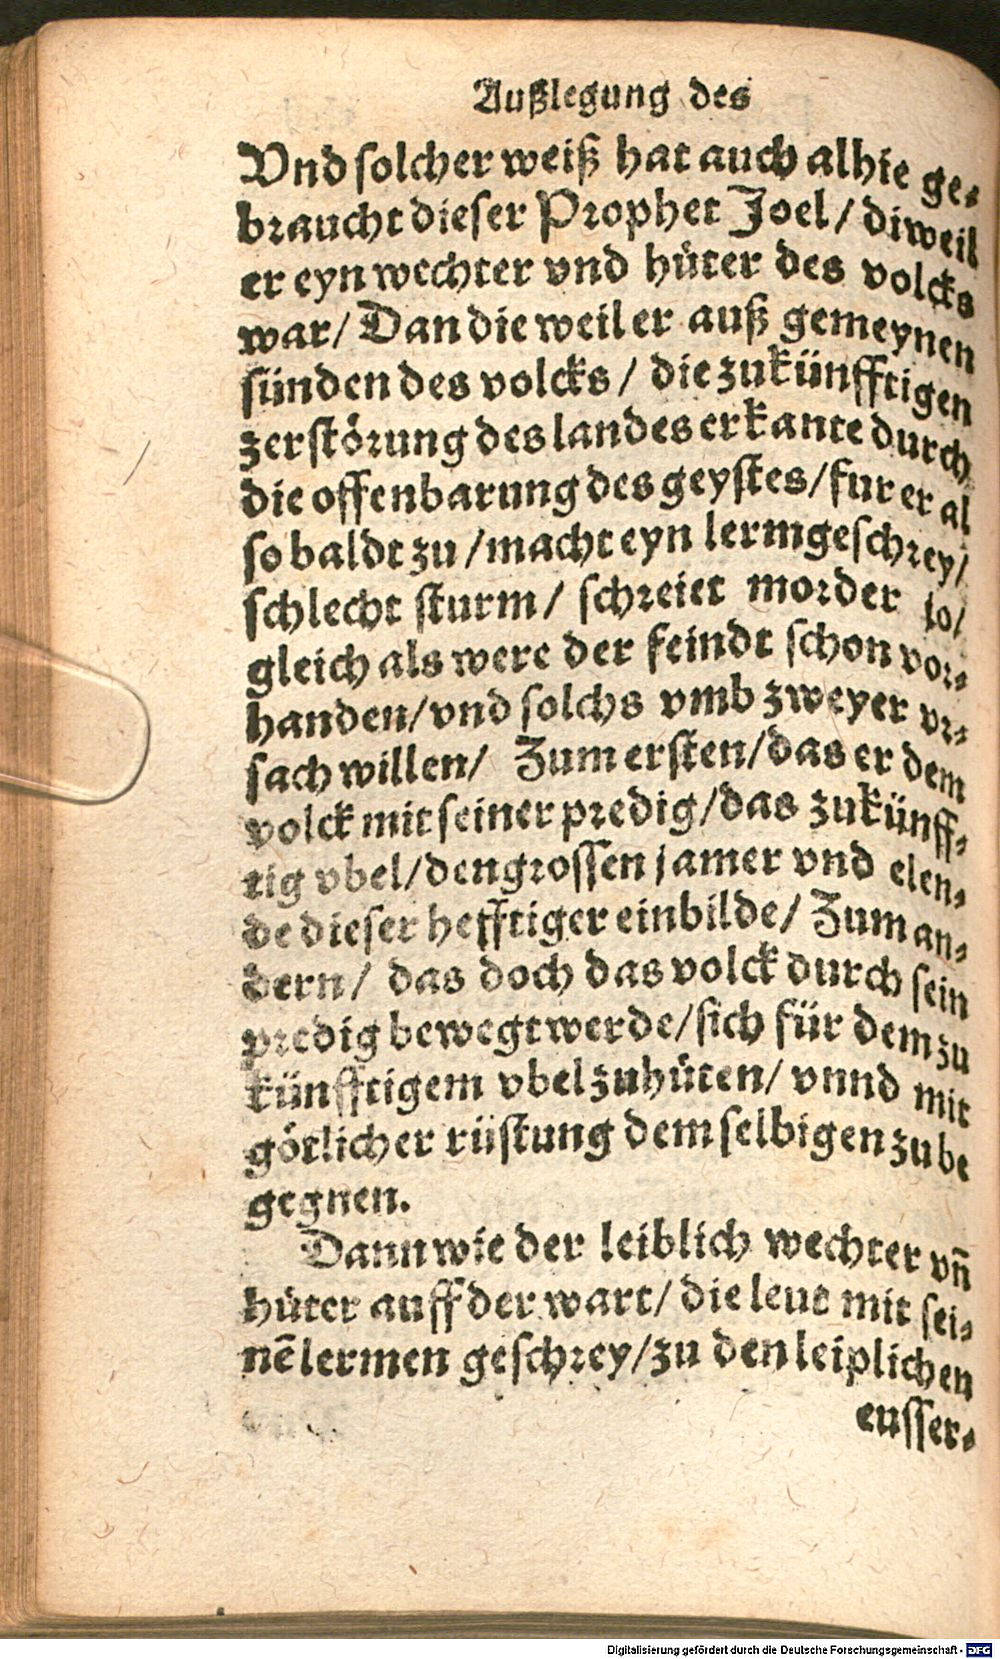 Außlegung des
Vnd solcher weiß hat auch alhie ge-
braucht dieser Prophet Joel/ diweil
er eyn wechter vnd hüter des volcks
war/ Dan die weil er auß gemeynen
sünden des volcks/ die zukünfftigen
zerstörung des landes erkante durch
die offenbarung des geystes/ fur er al
so baldt zu/ macht eyn lermgeschrey/
schlecht sturm/ schreiet morder jo/
gleich als were der feindt schon vor-
handen/ vnd solchs vmb zweyer vr-
sach willen/ Zum ersten/ das er dem
volck mit seiner predig/ das zukünff-
tig vbel/ den grossen jamer vnd elen-
de dieser hefftiger einbilde/ Zum an-
dern/ das doch das volck durch sein
predig bewegt werde/ sich für dem zu
künfftigem vbel zuhüten/ vnnd mit
götlicher rüstung dem selbigen zu be
gegnen.
Dann wie der leiblich wechter vn̄
hüter auff der wart/ die leut mit sei-
nē lermen geschrey/ zu den leiplichen
eusser-
Digitalisierung gefördert durch die Deutsche Forschungsgemeinschaft - DFG